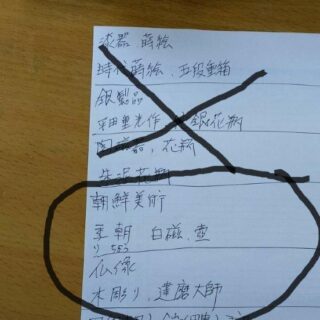 漆器 蒔絵
時代蒔絵、五段重箱
銀製品
平田重光作、 銀花瓶
陶磁器、花瓶
朱泥花瓶
朝鮮美術
李朝 白磁、壺
りちょう
仏像
木彫り、達磨大師